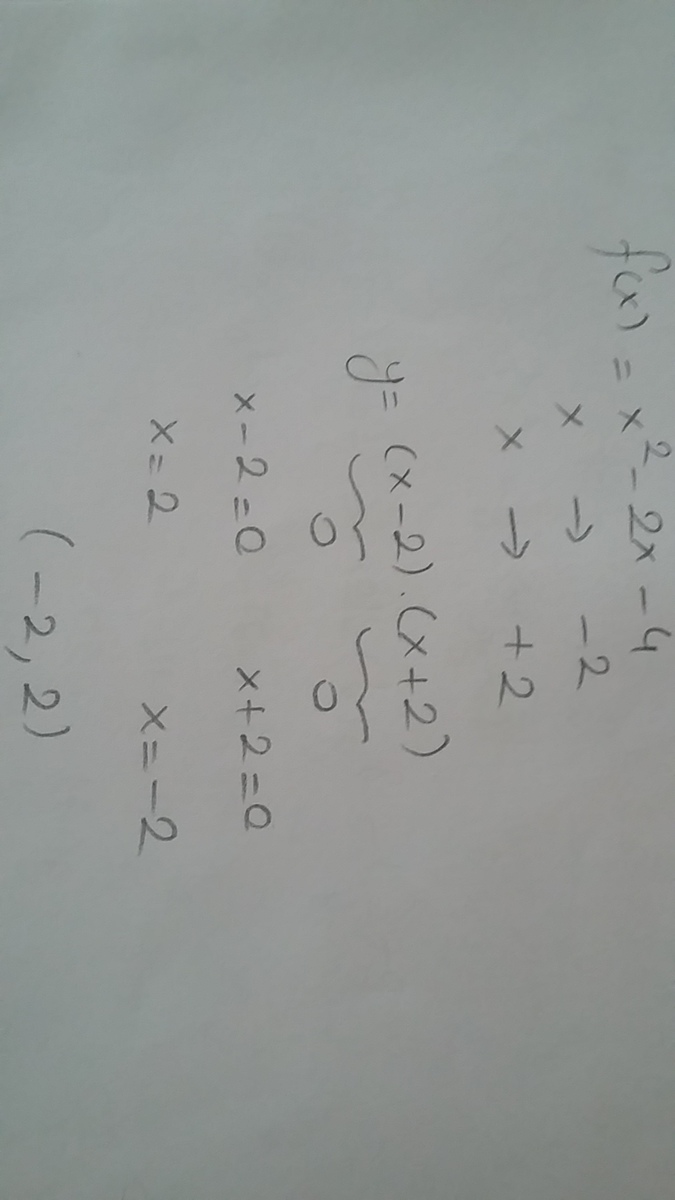 f(x) = x² - 2x - 4
x → -2
x → +2
y = (x-2).(x+2)
0 0
x-2=0 x+2=0
x=2 x=-2
(-2, 2)